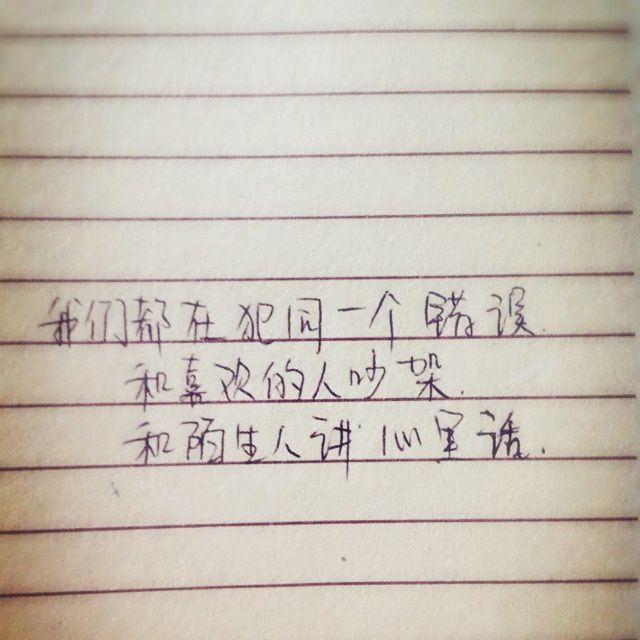 我们都在犯同一个错误.
和喜欢的人吵架.
和陌生人讲心里话.